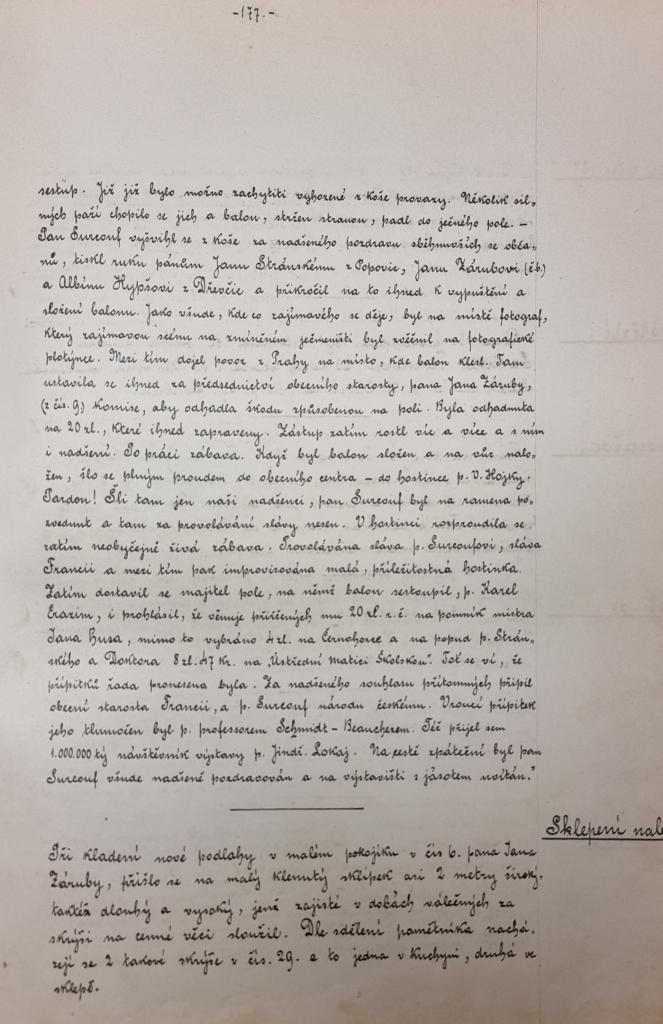 -177.-
sestup. Již již bylo možno zachytiti vyhozené z koše provazy. Několik sil-
ných paží chopilo se jich a balon, stržen stranou, padl do ječného pole. -
Pan Surcouf vyšvihl se z koše za nadšeného pozdravu sběhnuvších se obča-
nů, tiskl ruku pánům Janu Stránskému z Popovic, Janu Zárubovi (č.6.)
a Albínu Hypšovi z Dřevčic a přikročil na to ihned k vypuštění a
složení balonu. Jako všude, kde co zajímavého se děje, byl na místě fotograf,
který zajímavou scénu na zmíněném ječmeništi byl zvěčnil na fotografické
plotýnce. Mezi tím dojel povoz z Prahy na místo, kde balon klesl. Tam
ustavila se ihned za předsednictví obecního starosty, pana Jana Záruby,
(z čís. 9.) komise, aby odhadla škodu způsobenou na poli. Byla odhadnuta
na 20 zl., které ihned zapraveny. Zástup zatím rostl víc a více a s ním
i nadšení. Po práci zábava. Když byl balon složen a na vůz nalo-
žen, šlo se plným proudem do obecního centra - do hostince p. V. Hojky.
Pardon! Šli tam jen naši nadšenci, pan Surcouf byl na ramena po-
zvednut a tam za provolávání slávy nesen. V hostinci rozproudila se
zatím neobyčejně živá zábava. Provolávána sláva p. Surcoufovi, sláva
Francii a mezi tím pak improvisována malá, příležitostná hostinka.
Zatím dostavil se majitel pole, na němž balon sestoupil, p. Karel
Erazim, i prohlásil, že věnuje přiřčených mu 20 zl. r. č. na pomník mistra
Jana Husa, mimo to vybráno 4 zl. na Černohorce a na popud p. Strán-
ského a Doktora 8 zl. 47 kr. na „Ústřední Matici Školskou". Toť se ví, že
přípitků řada pronesena byla. Za nadšeného souhlasu přítomných připil
obecní starosta Francii, a p. Surcouf národu českému. Vroucí přípitek
jeho tlumočen byl p. professorem Schmidt-Beaucherem. Též přijel sem
1.000.000 tý návštěvník výstavy p. Jindř. Lokaj. Na cestě zpáteční byl pan
Surcouf všude nadšeně pozdravován a na výstavišti s jásotem uvítán."
Sklepení nale
Při kladení nové podlahy v malém pokojíku v čís 6. pana Jana
Záruby, přišlo se na malý klenutý sklípek asi 2 metry široký,
taktéž dlouhý a vysoký, jenž zajisté v dobách válečných za
skrýši na cenné věci sloužil. Dle sdělení pamětníka nachá-
zejí se 2 takové skrýše v čís. 29. a to jedna v kuchyni, druhá ve
sklepě.